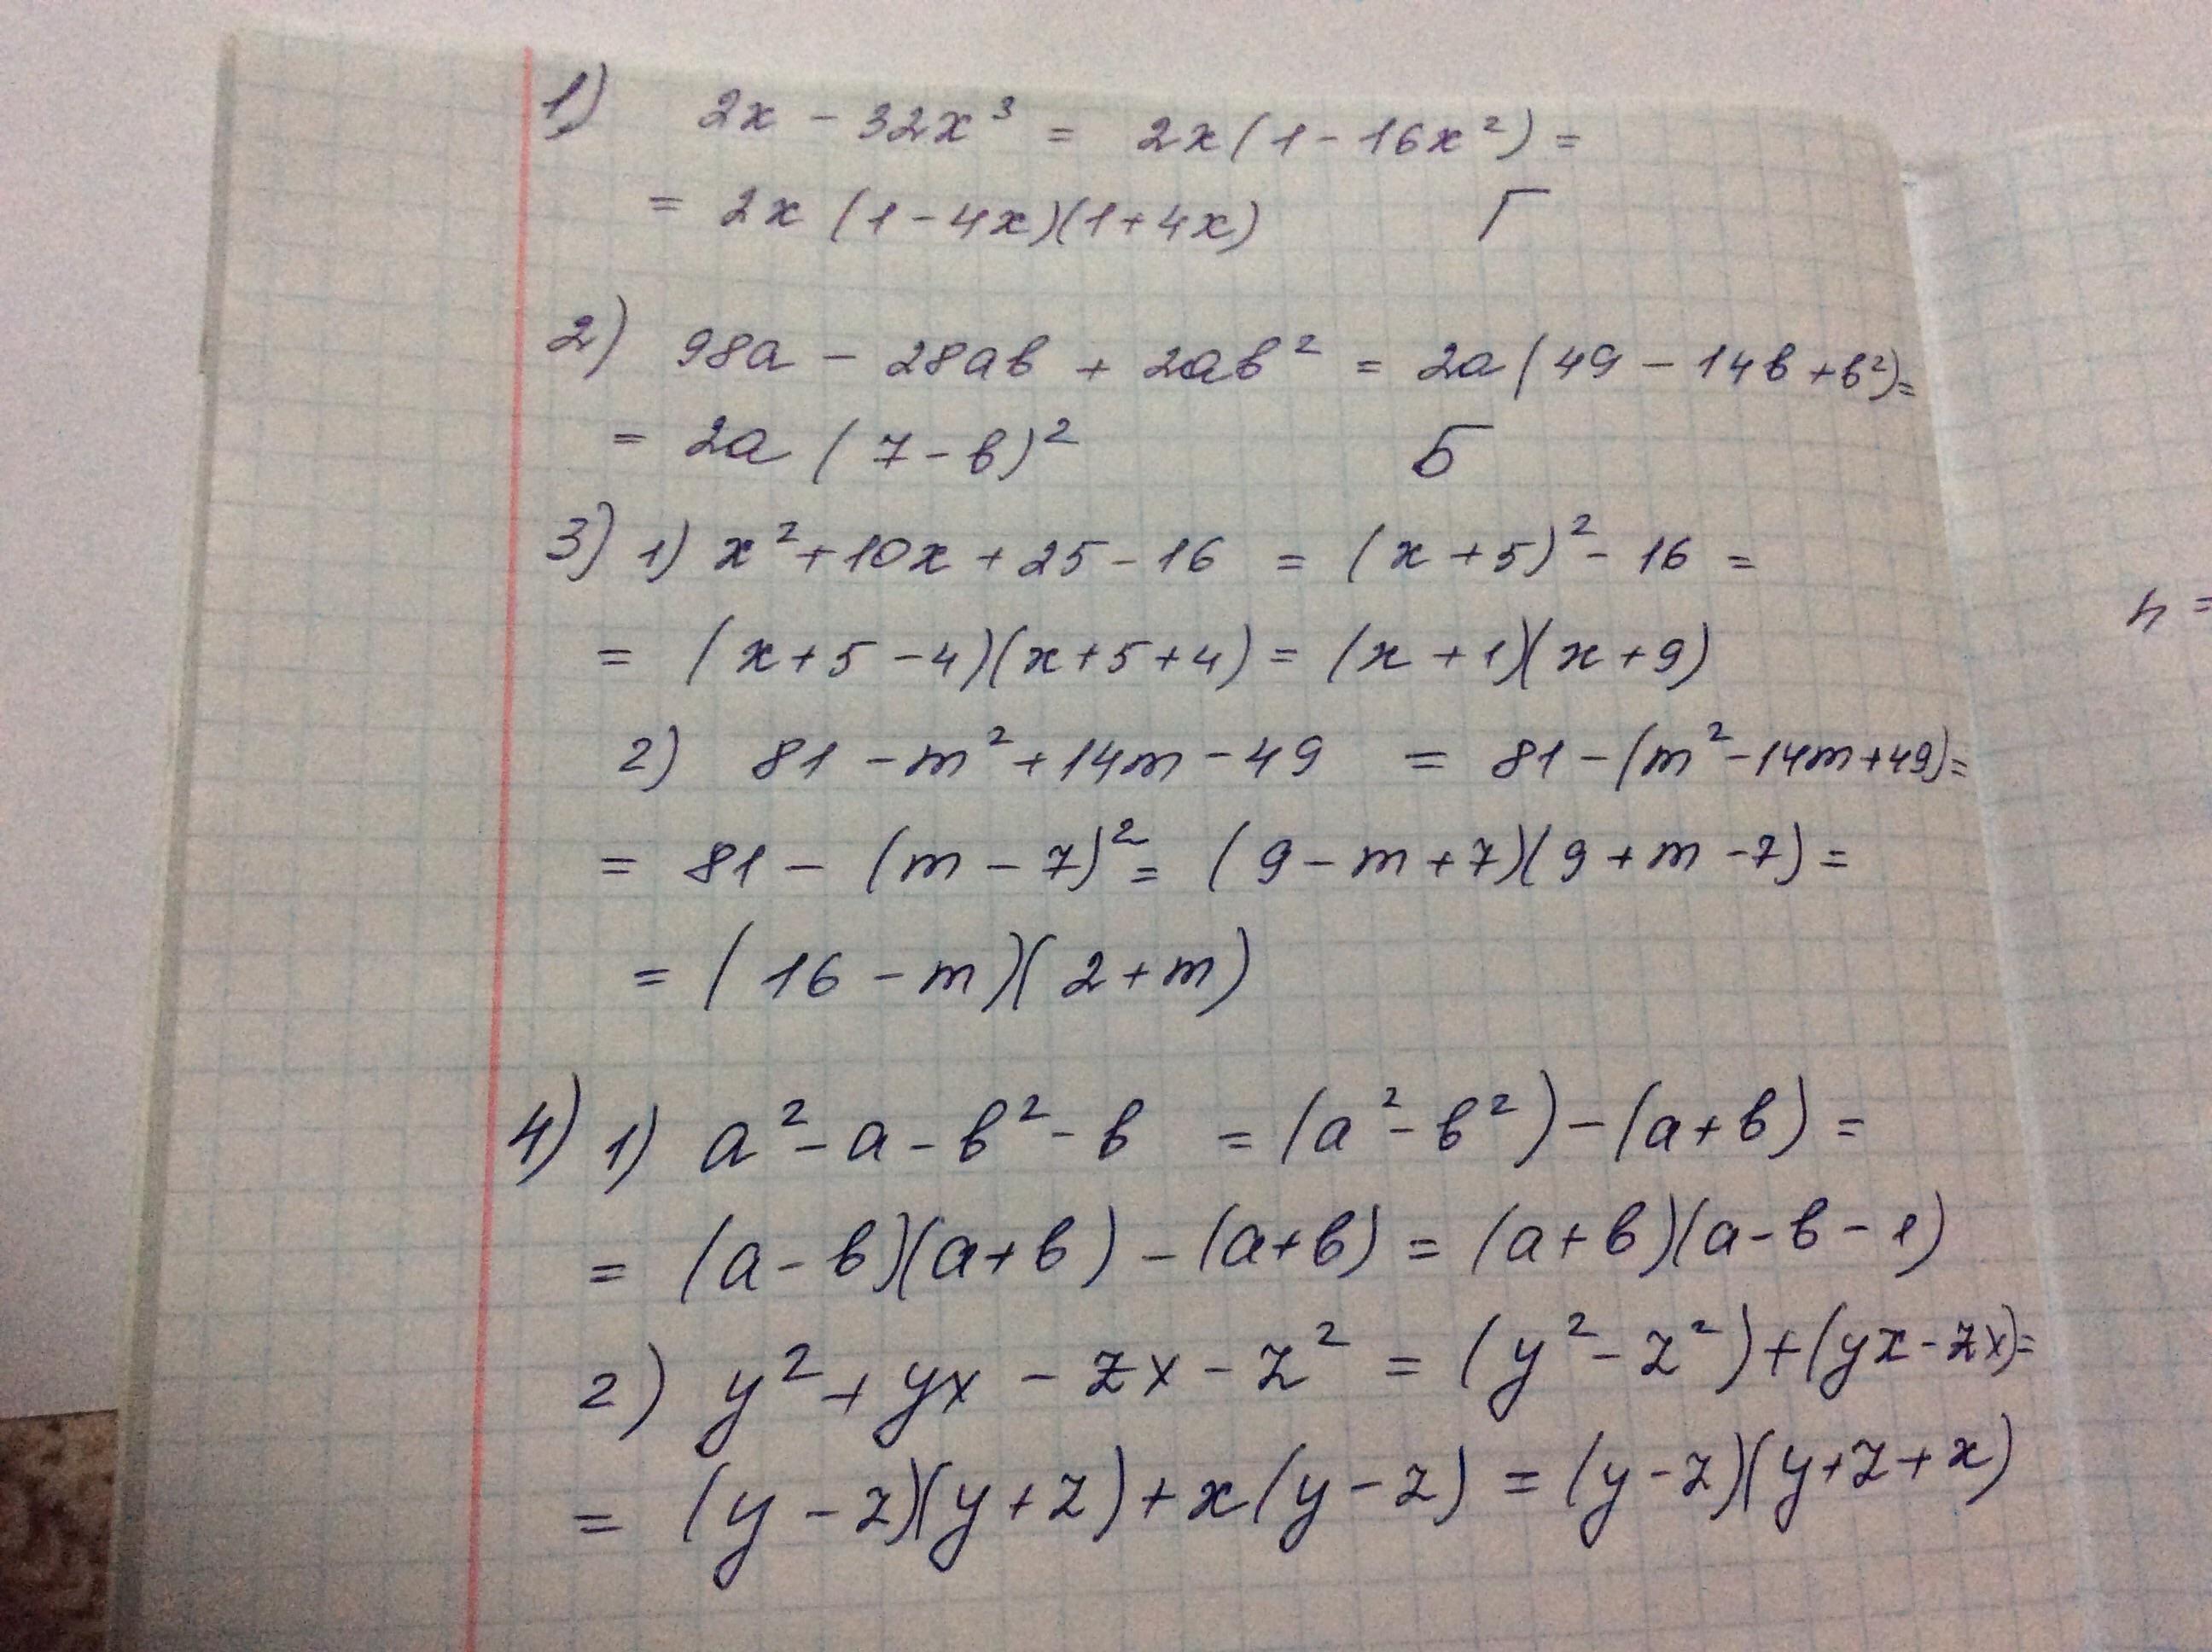 1) 2x - 32x³ = 2x(1 - 16x²) =
= 2x (1 - 4x)(1 + 4x) Г
2) 98a - 28ab + 2ab² = 2a(49 - 14b + b²) =
= 2a (7 - b)² Б
3) 1) x² + 10x + 25 - 16 = (x + 5)² - 16 =
= (x + 5 - 4)(x + 5 + 4) = (x + 1)(x + 9)
2) 81 - m² + 14m - 49 = 81 - (m² - 14m + 49) =
= 81 - (m - 7)² = (9 - m + 7)(9 + m - 7) =
= (16 - m)(2 + m)
4) 1) a² - a - b² - b = (a² - b²) - (a + b) =
= (a - b)(a + b) - (a + b) = (a + b)(a - b - 1)
2) y² + yx - zx - z² = (y² - z²) + (yx - zx) =
= (y - z)(y + z) + x(y - z) = (y - z)(y + z + x)